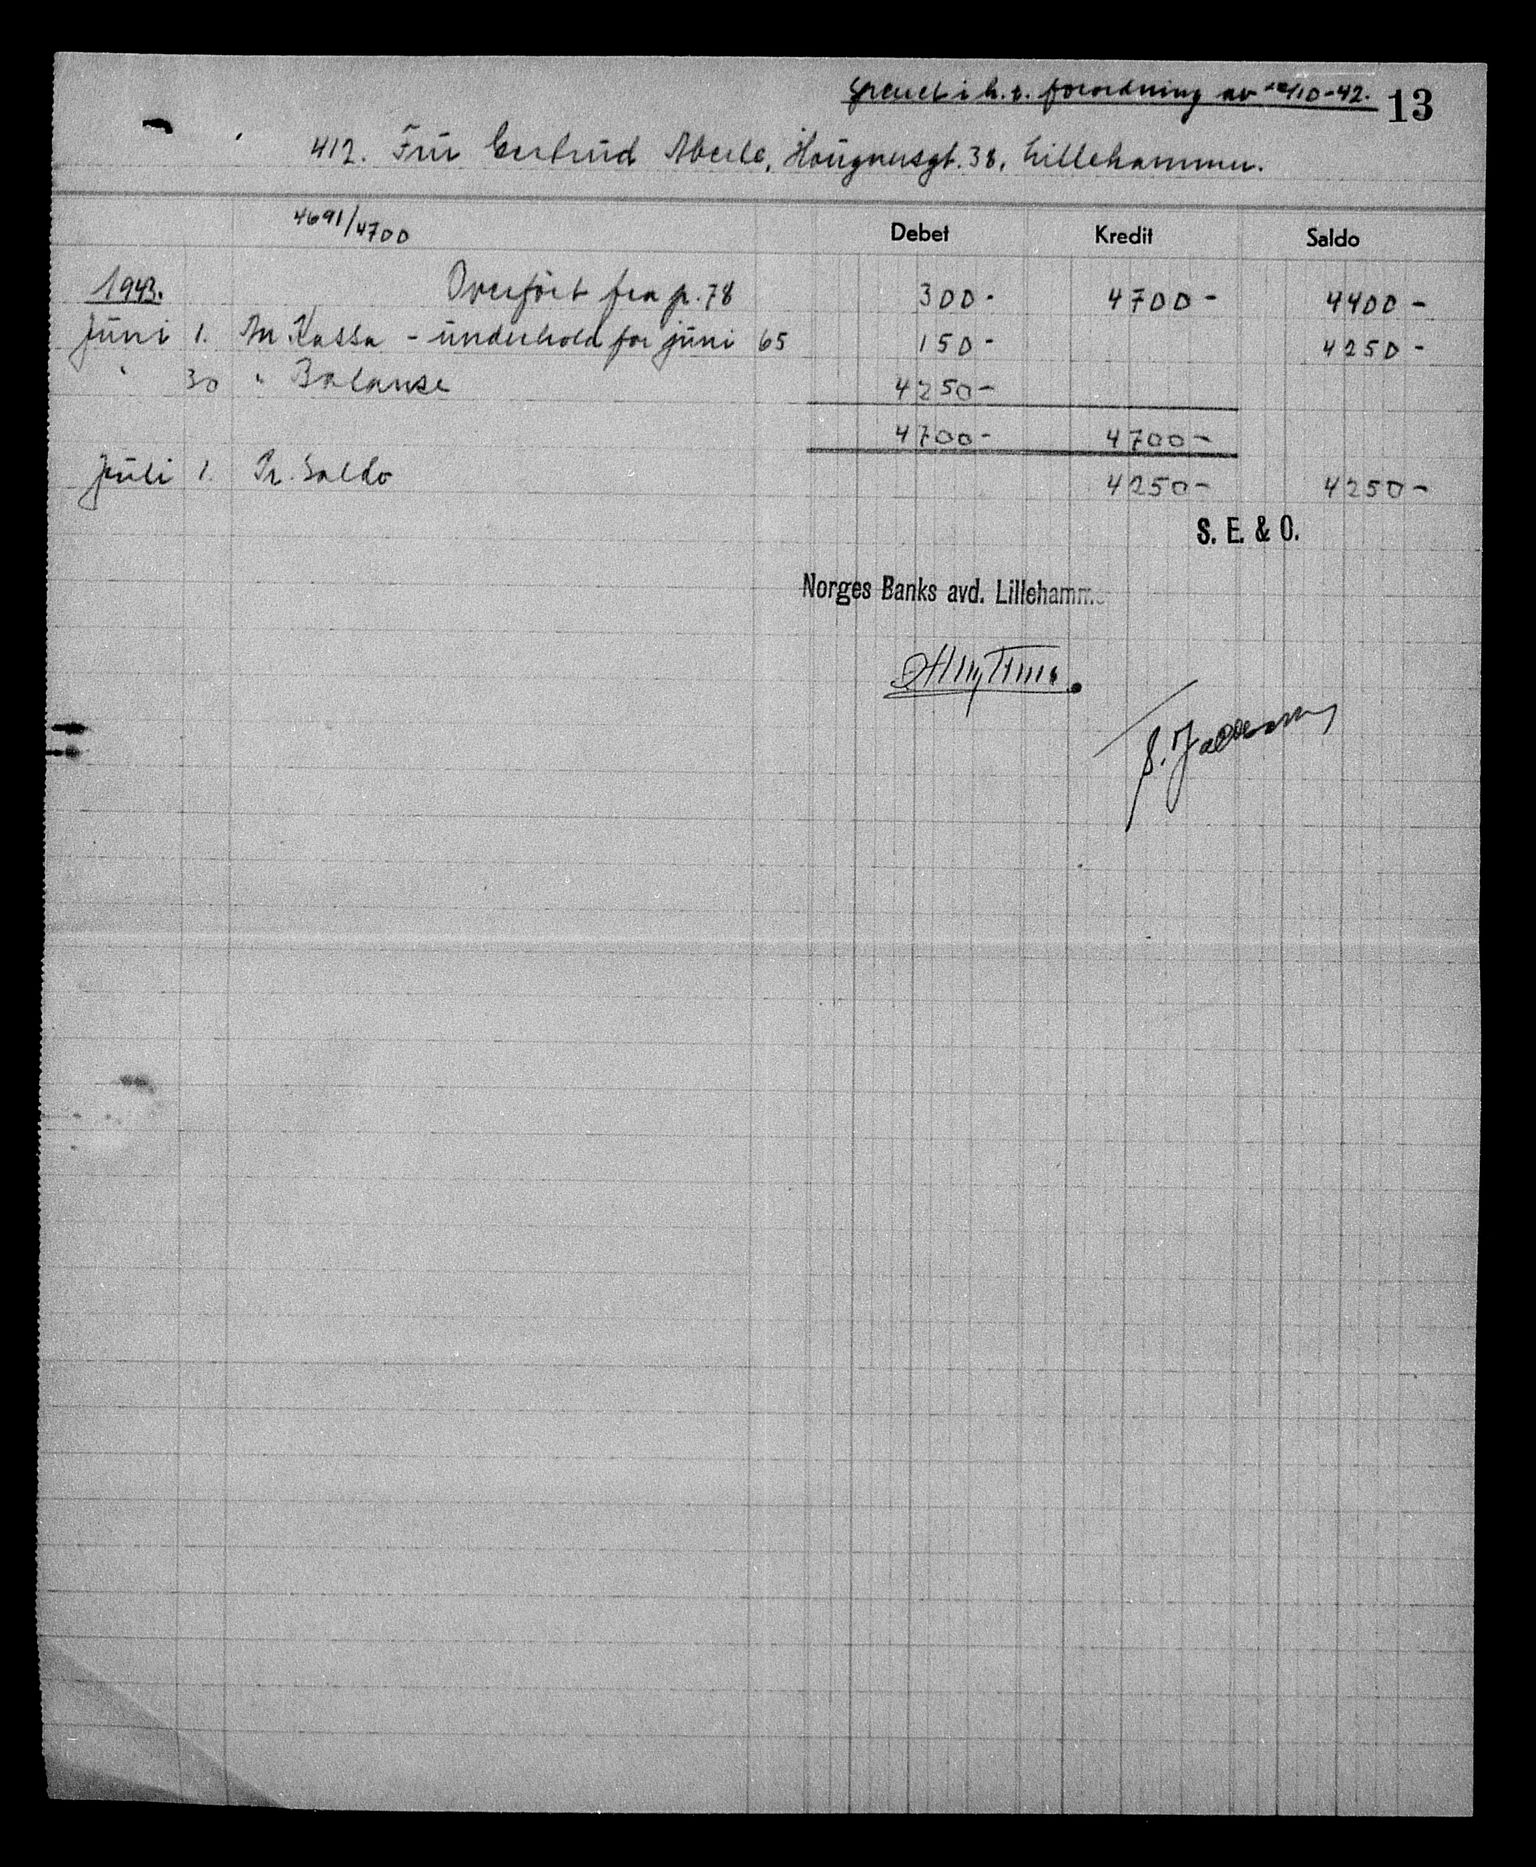 Sperret i h.t. forordning av 26/10-42. 13
412. Frü Gertrüd Aberle, Haugnersgt. 38, Lillehammer.
4691/4700 Debet Kredit Saldo
1943. Overfört fra p. 78 300- 4700- 4400-
Jüni 1. An Kassa - ünderhold for jüni 65 150- 4250-
" 30 " Balanse 4250-
4700- 4700-
Jüli 1. Pr. Saldo 4250- 4250-
S. E. & O.
Norges Banks avd. Lillehammer